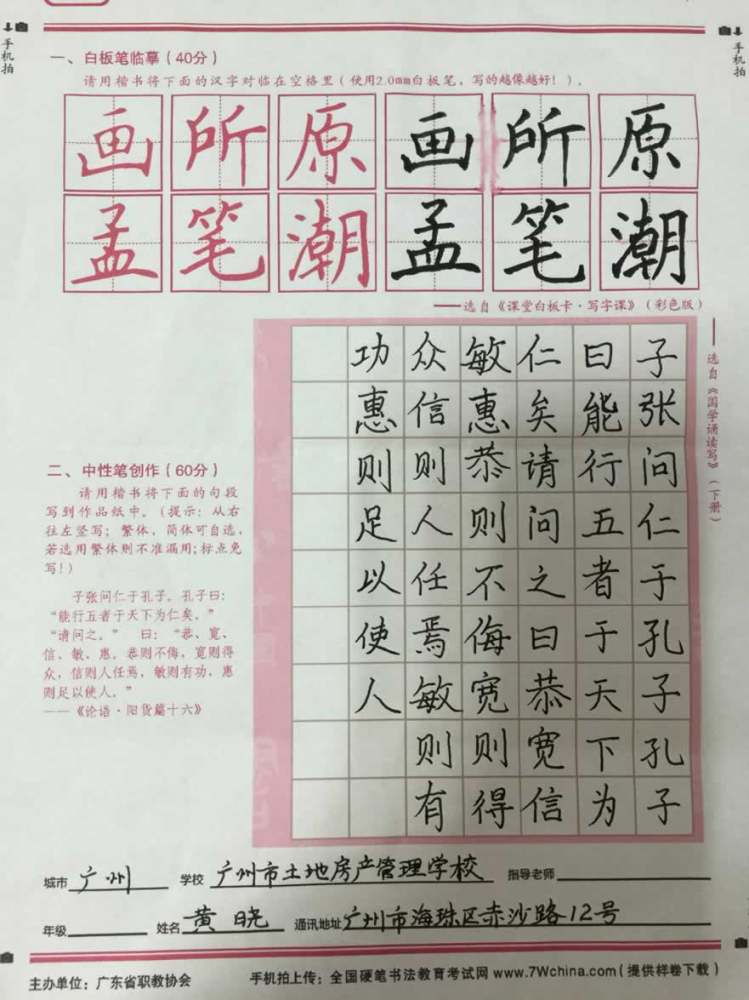 手机拍
手机拍
一、白板笔临摹（40分）
请用楷书将下面的汉字对临在空格里（使用2.0mm白板笔，写的越像越好！）。
画所原画所原
孟笔潮孟笔潮
——选自《课堂白板卡·写字课》（彩色版）
——选自《国学诵读写》（下册）
子张问仁于孔子孔子
曰能行五者于天下为
仁矣请问之曰恭宽信
敏惠恭则不侮宽则得
众信则人任焉敏则有
功惠则足以使人
二、中性笔创作（60分）
请用楷书将下面的句段
写到作品纸中。（提示：从右
往左竖写；繁体，简体可自选，
若选用繁体则不准漏用；标点免
写！）
子张问仁于孔子。孔子曰：
“能行五者于天下为仁矣。”
“请问之。” 曰：“恭、宽、
信、敏、惠。恭则不侮，宽则得
众，信则人任焉，敏则有功，惠
则足以使人。”
——《论语·阳货篇十六》
城市 广州 学校 广州市土地房产管理学校 指导老师
年级 姓名 黄晓 通讯地址 广州市海珠区赤沙路12号
主办单位：广东省职教协会 手机拍上传：全国硬笔书法教育考试网 www.7Wchina.com（提供样卷下载）